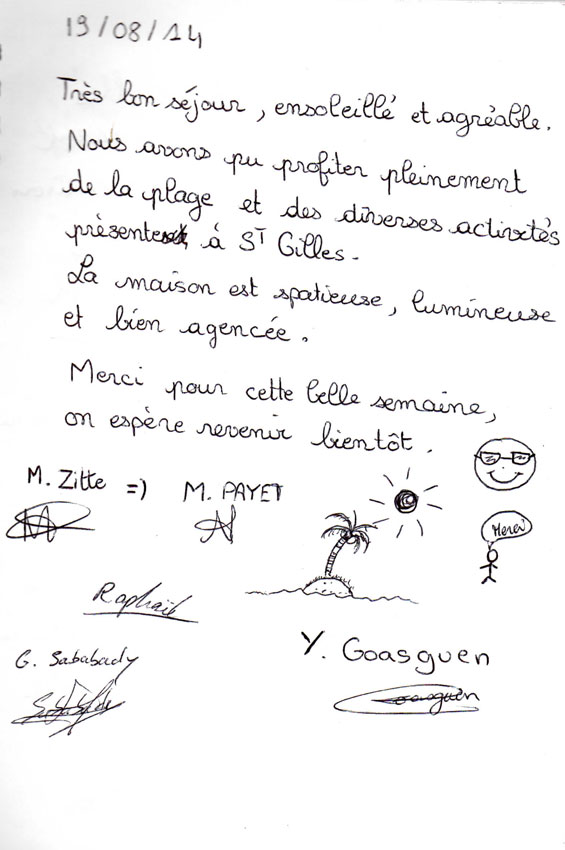 19/08/14
Très bon séjour, ensoleillé et agréable.
Nous avons pu profiter pleinement
de la plage et des diverses activités
présentes à St Gilles.
La maison est spatieuse, lumineuse
et bien agencée.
Merci pour cette belle semaine,
on espère revenir bientôt.
M. Zitte =) M. PAYET
Merci
Raphaël
G. Sababady
Y. Goasguen
Goasguen